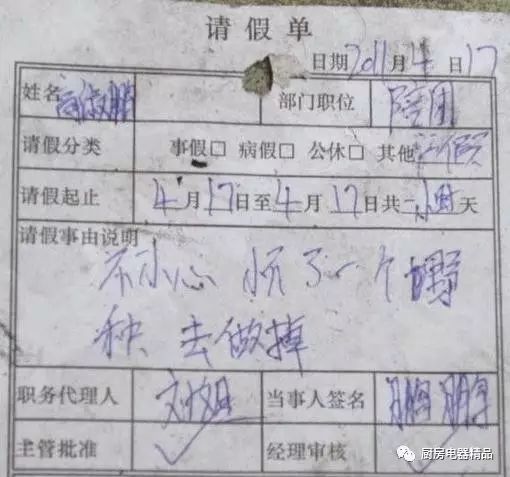 请假单
日期2011月4日17
姓名
部门职位
请假分类 事假□ 病假□ 公休□ 其他
请假起止 4月17日至4月17日共一小时天
请假事由说明
不小心 怀了一个野
种 去做掉
职务代理人 当事人签名
主管批准 ✓ 经理审核 ✓
厨房电器精品